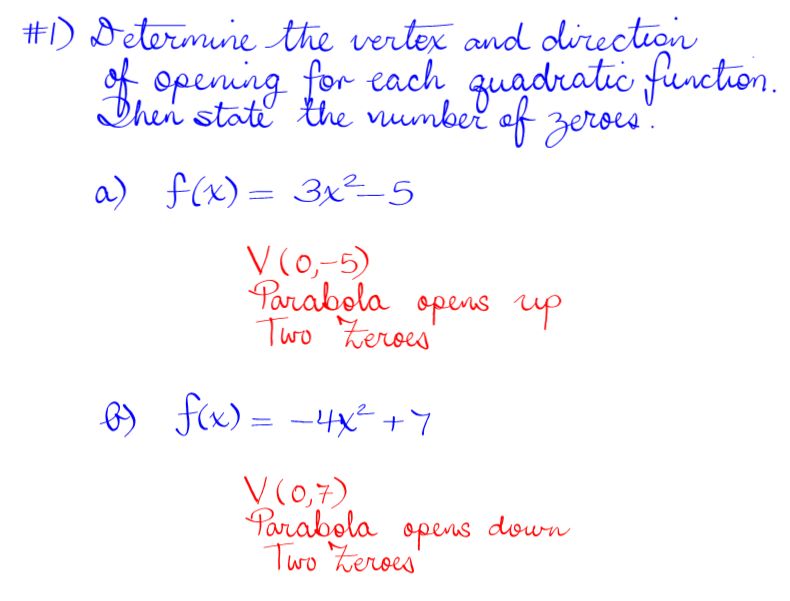 #1) Determine the vertex and direction
of opening for each quadratic function.
Then state the number of zeroes.
a) f(x) = 3x²-5
V(0,-5)
Parabola opens up
Two Zeroes
b) f(x) = -4x² + 7
V(0,7)
Parabola opens down
Two Zeroes